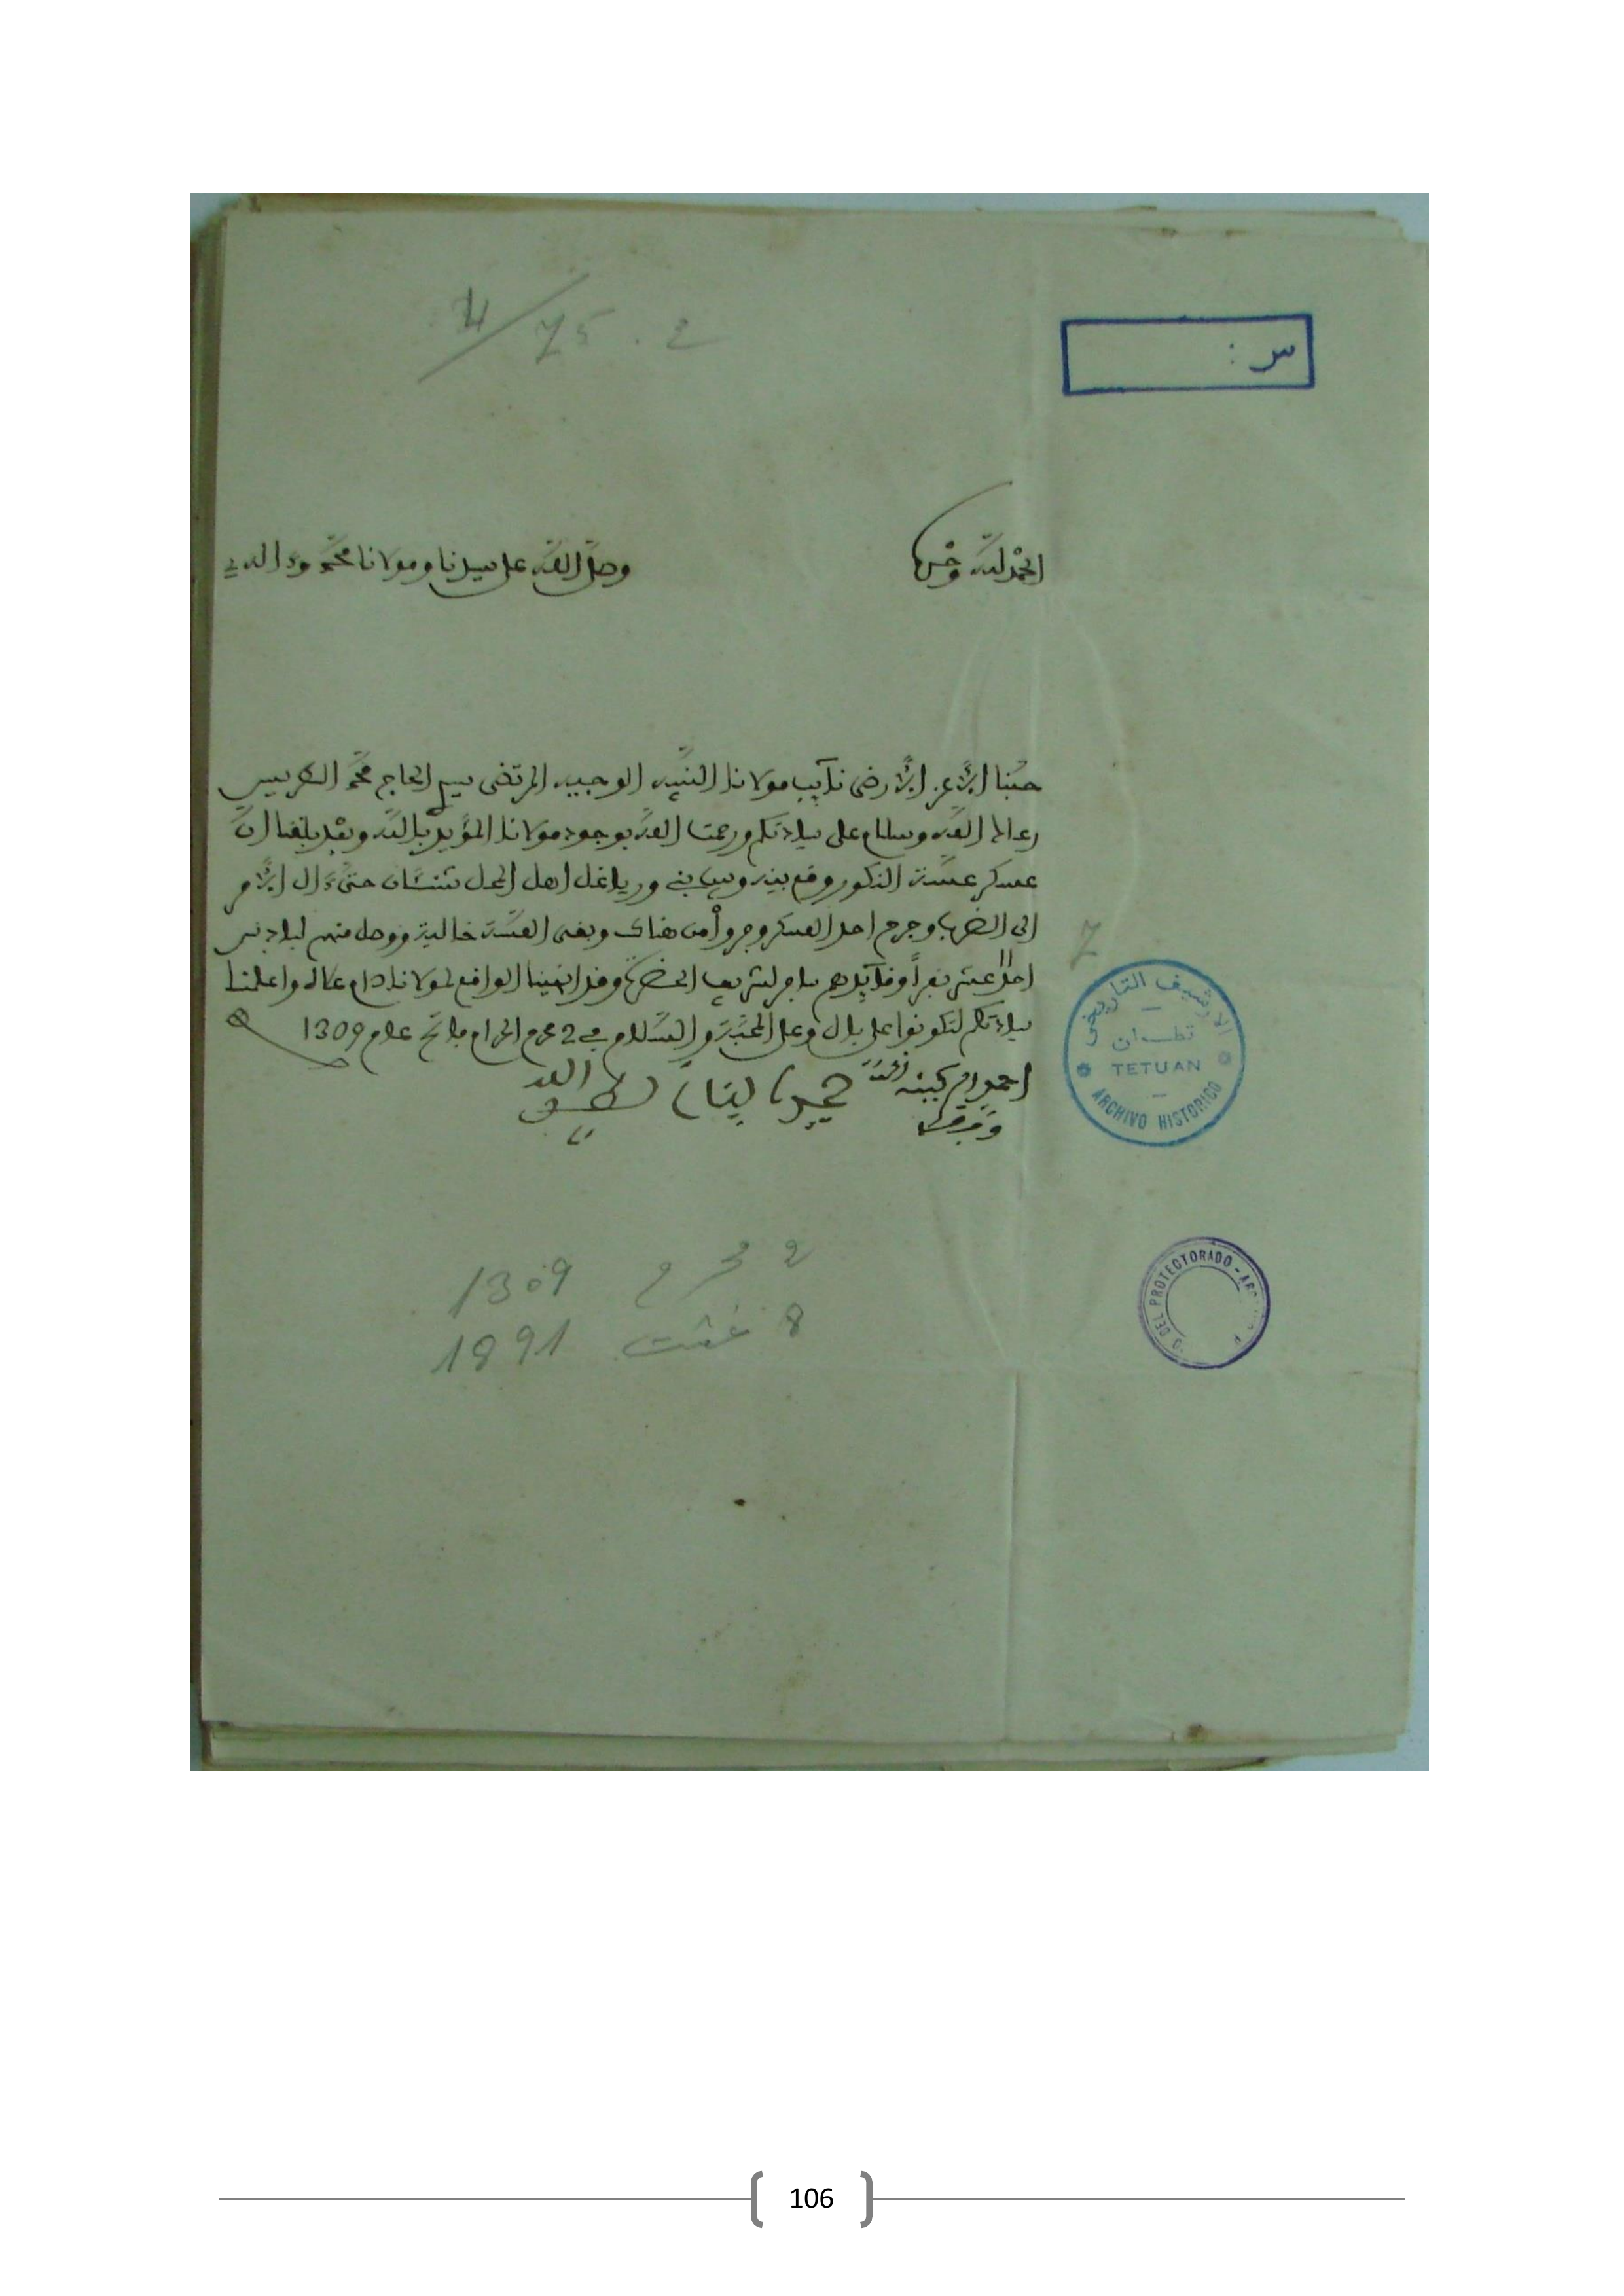 4/75.2
س :
الحمد لله وحده
وصلى الله على سيدنا ومولانا محمد وءاله
حبنا الأعز الأرضى نايب مولانا النبيه الوجيه المرتضى سي الحاج محمد الطريس
رعاك الله وسلام على سيادتكم ورحمت الله بوجود مولانا المؤيد بالله وبعد بلغنا ان
عسكر عسة النكور وقع بينه وبين بني ورياغل اهل المحل حتى ءال الأمر
الى الضرب وجرح احد العسكر من هناك وبقى العسة خالية ووصل منهم لبادس
احدا عشر نفرا وقايدهم الحضرة وقد انهينا الواقع لمولانا دام علاه واعلمنا
سيادتكم لتكونوا على بال وعلى المحبة والسلام في 2 محرم الحرام فاتح عام 1309
لطف الله
7
الارشيف التاريخي
تطوان
TETUAN
ARCHIVO HISTORICO
DEL PROTECTORADO
2 محرم 1309
8 غشت 1891
106